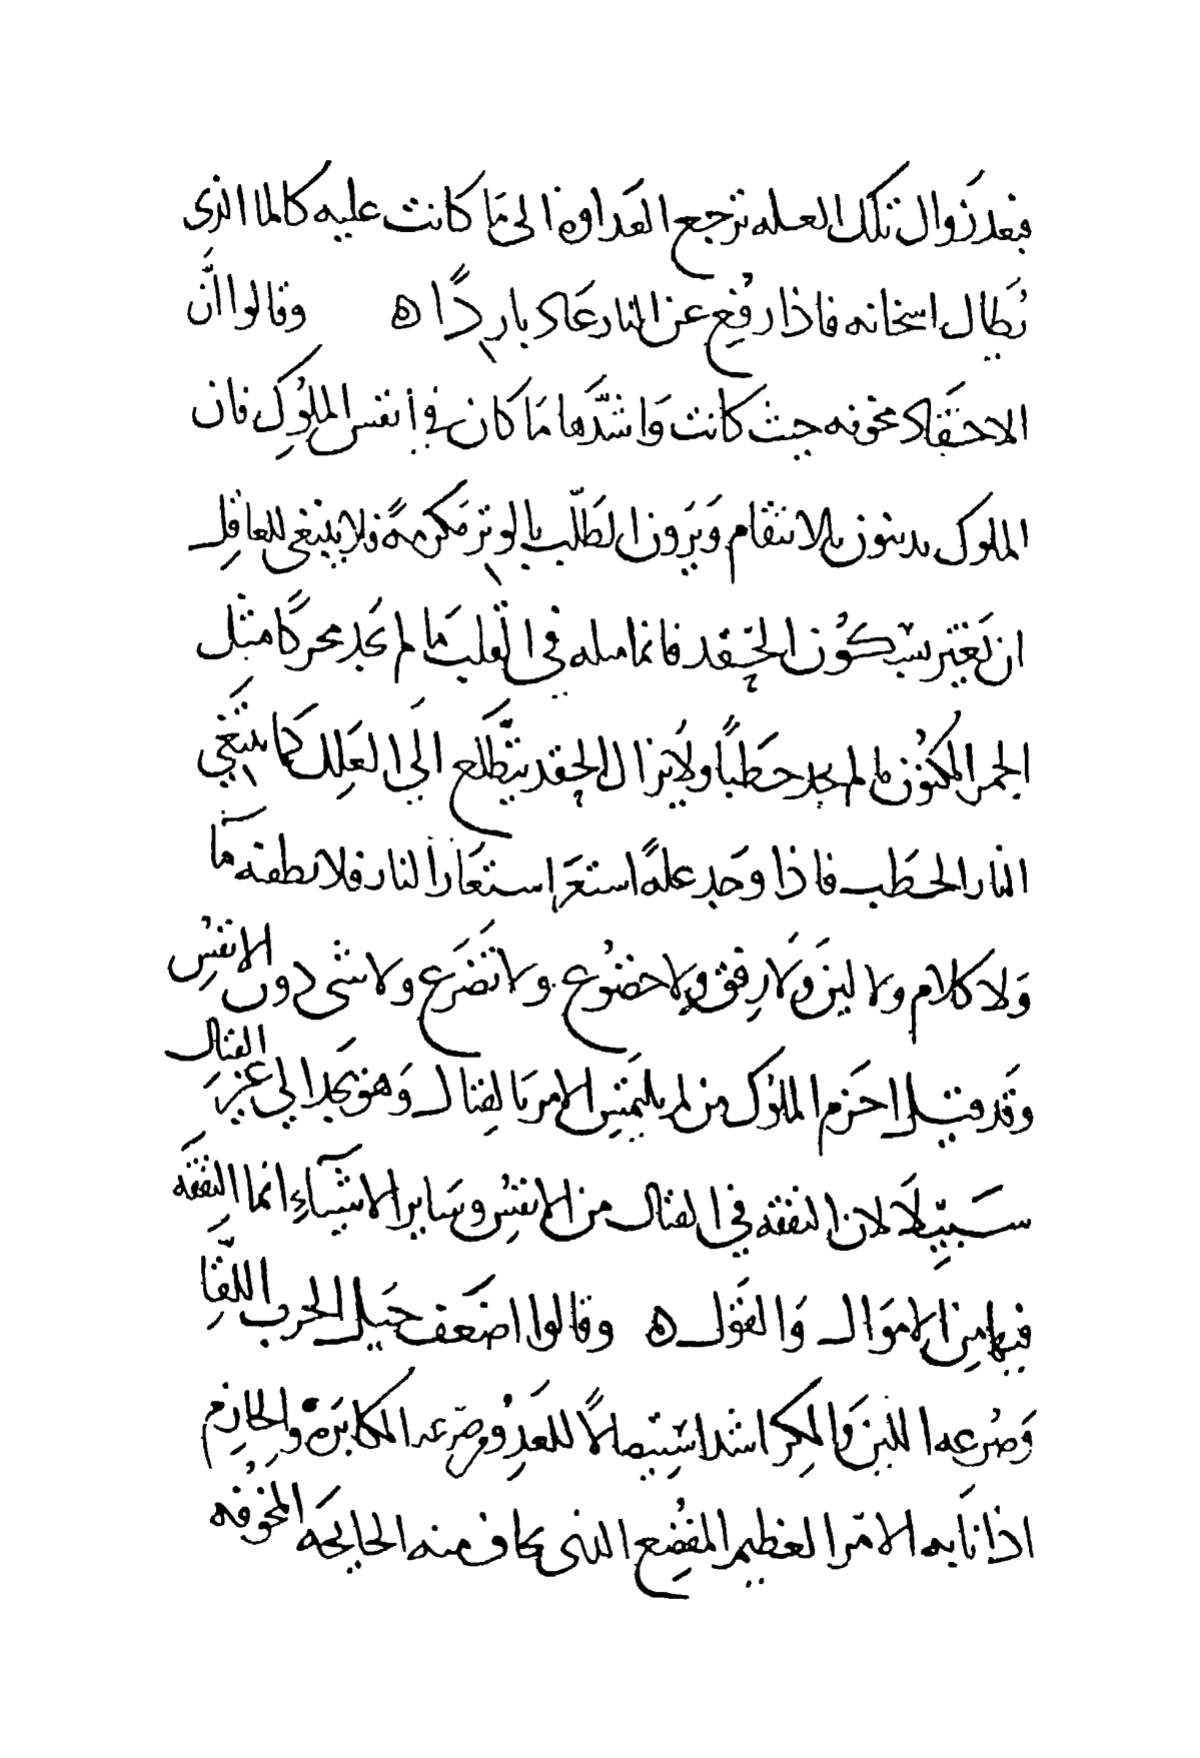 فبعد زَوال تلك العله ترجع العَداوه الى مَا كانت عليه كالما الذى
يُطَال اسخانه فاذا رُفِع عن النار عَاد باردًا ه وقالوا انَّ
الاحقَاد مخوفه حيث كانت وَاشدَّها مَا كان في أنفس الملُوكِ فان
الملوك يدينون بالانتقام وَيَرَون الطَلّب بالوتر مَكرمهً فلا ينبغي للعاقِل
ان يَغتر بسكُون الحِقد فانما مثله في القلب مَا لم يَجد محركًا مثل
الجمر المكنُون ما لم يجد حَطَبًا ولَا يزال الحِقد يتَطَلَّع الَى العَلِل كَمَا يَبتَغي
النار الحَطَب فاذا وَجد علهً استعَر استعَار النار فلا يطفئه مآ
وَلا كلام ولا لين وَلَا رِفق ولا خضُوع ولا تَضَرَع ولا شى دون الانفُسِ
وَقَد قيل احَزم الملُوك من لم يلتَمِسِ الامر بَالقِتال وَهو يَجد الى غَيرَ القتال
سَبيِّلًا لان النفقه في القتال من الانفُسِ وسَاير الاشيَآءِ انما النفقَه
فيها مِن الامَوَال وَالقَول ه وقالوا اضعَف حيَل الحرب اللقَّا
وَصُرعه اللين وَالمكِر اشد استِيصالًا للعَدِو من صَرِعه المكابَرَه وَالحَازِم
اذا نَابه الامَر العظيم المفضِع الذى يخاف منه الجايحَه المخُوفه